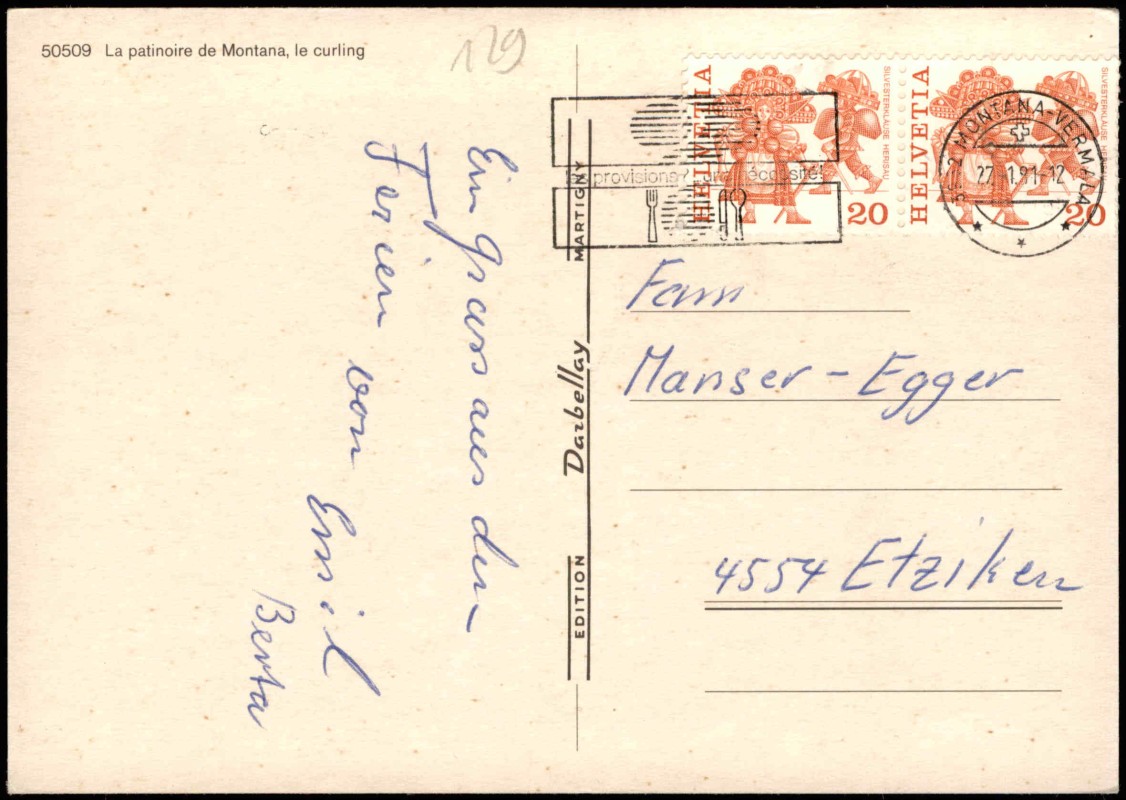 50509 La patinoire de Montana, le curling
129
HELVETIA
SILVESTERKLÄUSE HERISAU
20
HELVETIA
SILVESTERKLÄUSE HERISAU
20
MONTANA-VERMALA
27.-1.91-12
provisions
Ein Gruss aus den
Ferien von Emil
Berta
EDITION Darbellay MARTIGNY
Fam
Manser-Egger
4554 Etziken